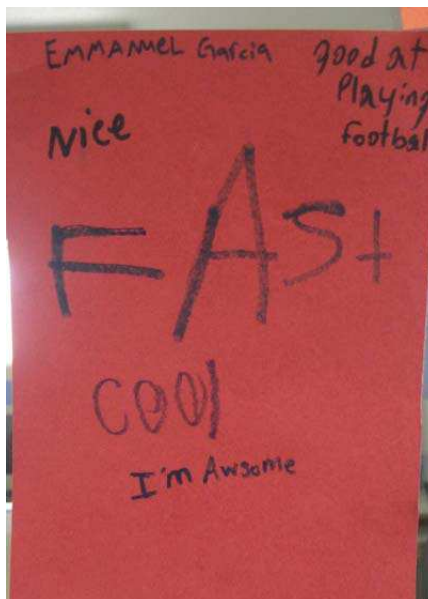 EMMANUEL Garcia
good at
Playing
football
Nice
FASt
cool
I'm Awsome